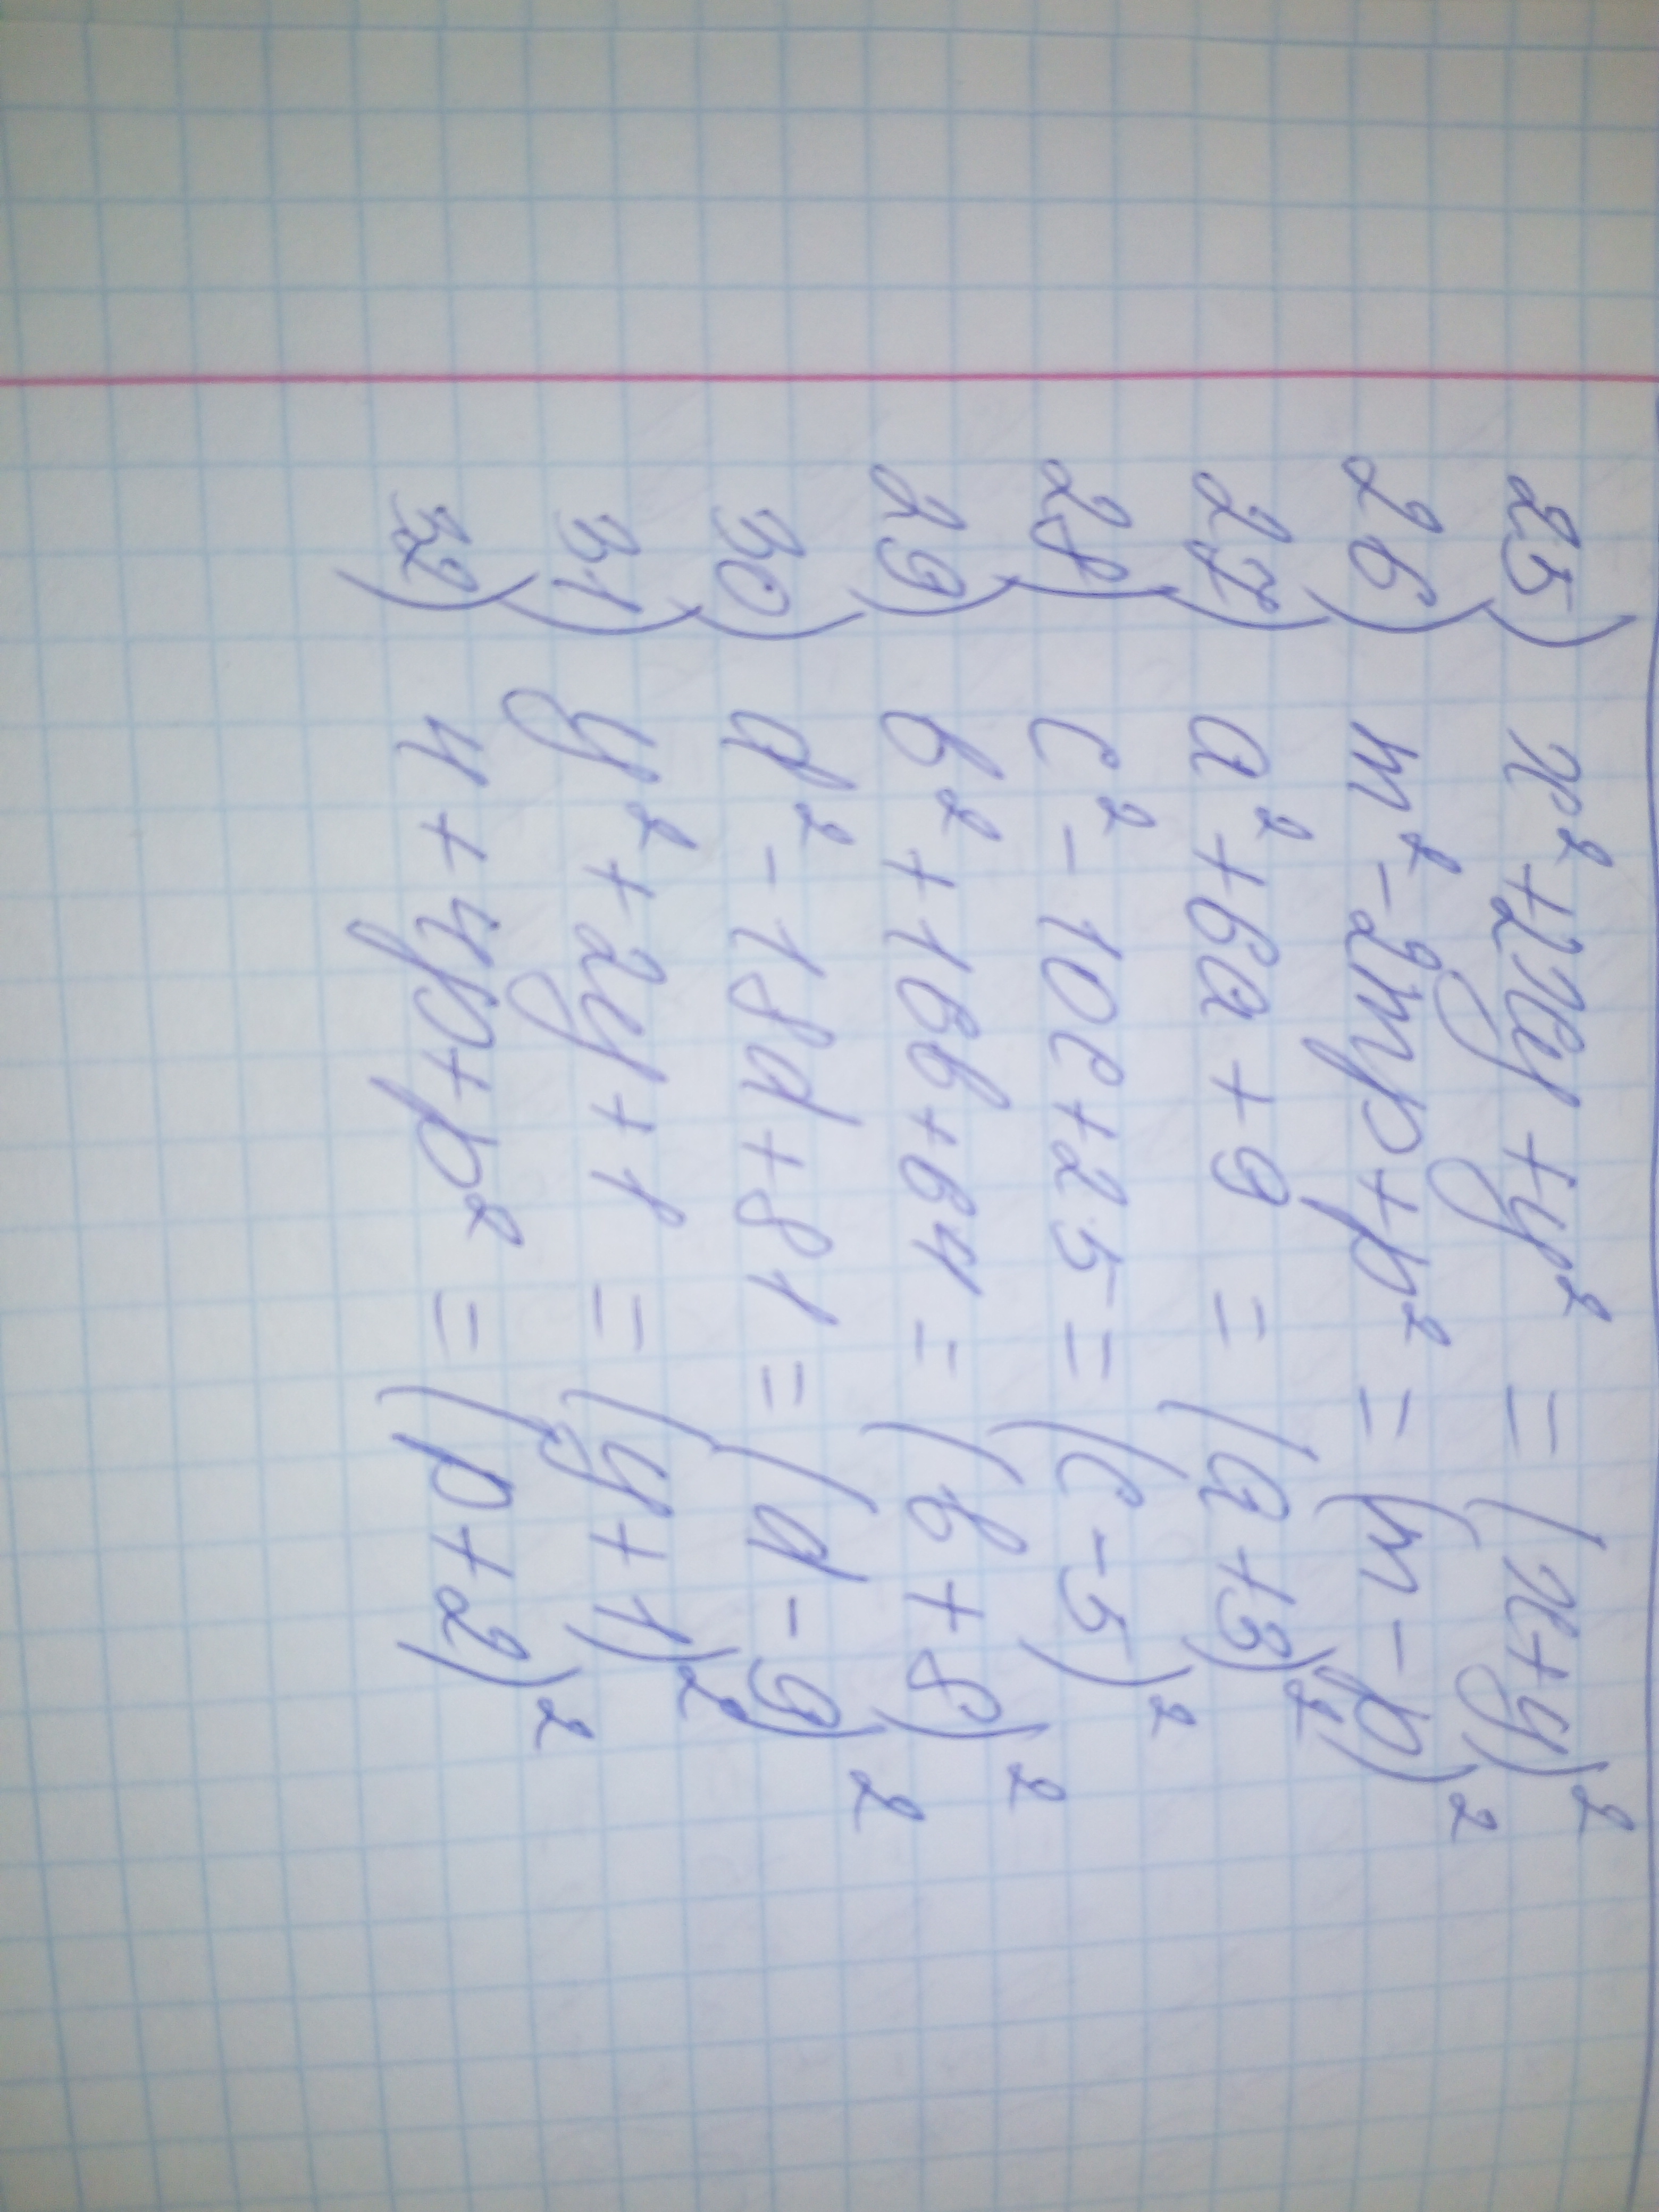 25) x² + 2xy + y² = (x + y)²
26) m² - 2mp + p² = (m - p)²
27) a² + 6a + 9 = (a + 3)²
28) c² - 10c + 25 = (c - 5)²
29) b² + 16b + 64 = (b + 8)²
30) d² - 18d + 81 = (d - 9)²
31) y² + 2y + 1 = (y + 1)²
32) 4 + 4p + p² = (p + 2)²